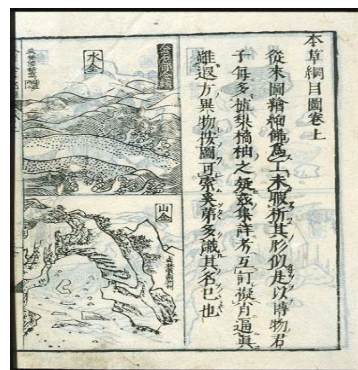 本草綱目圖卷上
從來圖繪細佛爲工未暇析其形似是以博物君
子每多梨橘柚之疑茲集詳考互訂擬肖逼真
雖遐方異物按圖可索奚第多識其名已也
水金
山金